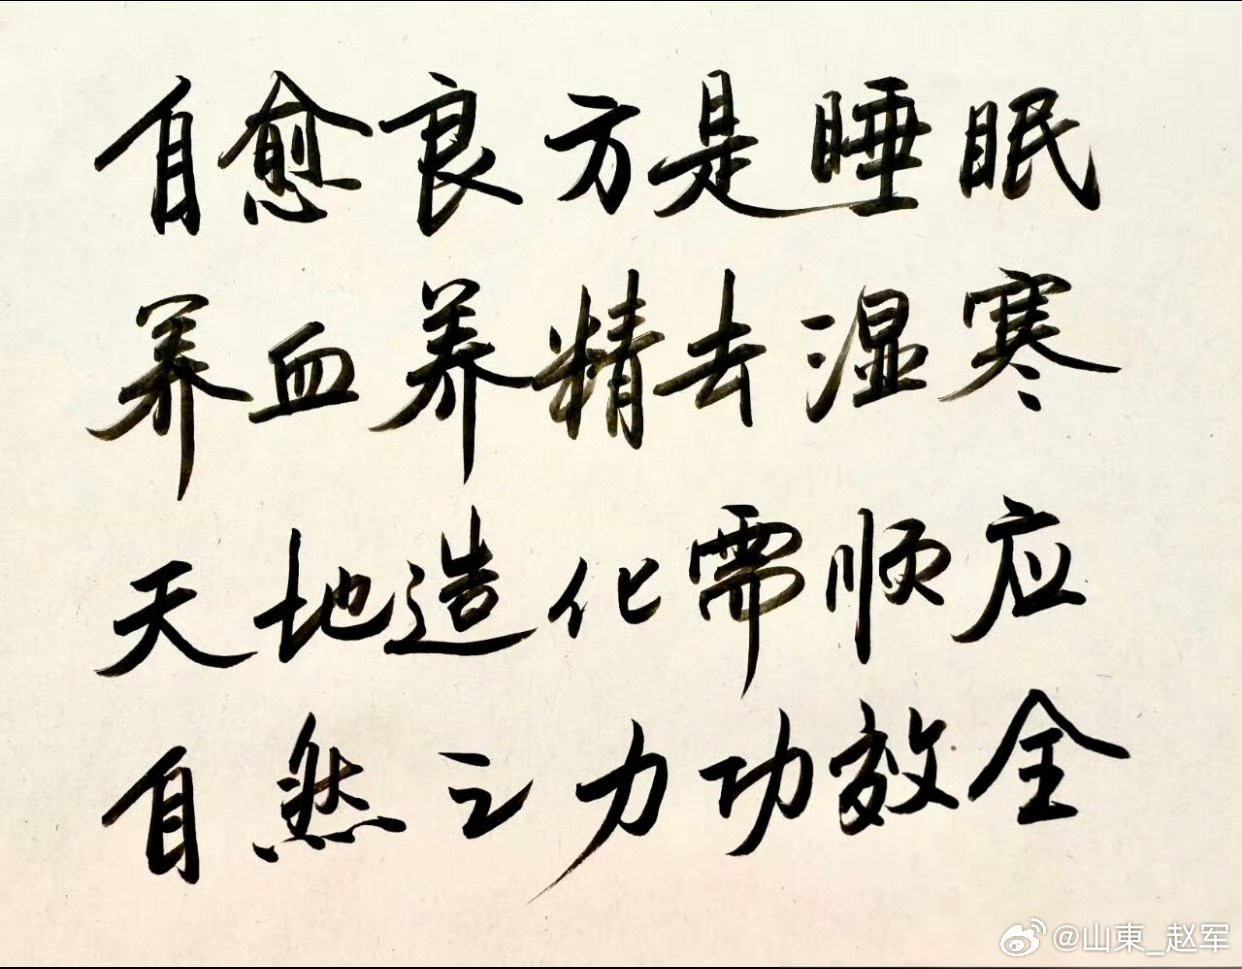 自愈良方是睡眠
养血养精去湿寒
天地造化需顺应
自然之力功效全
@山東_赵军